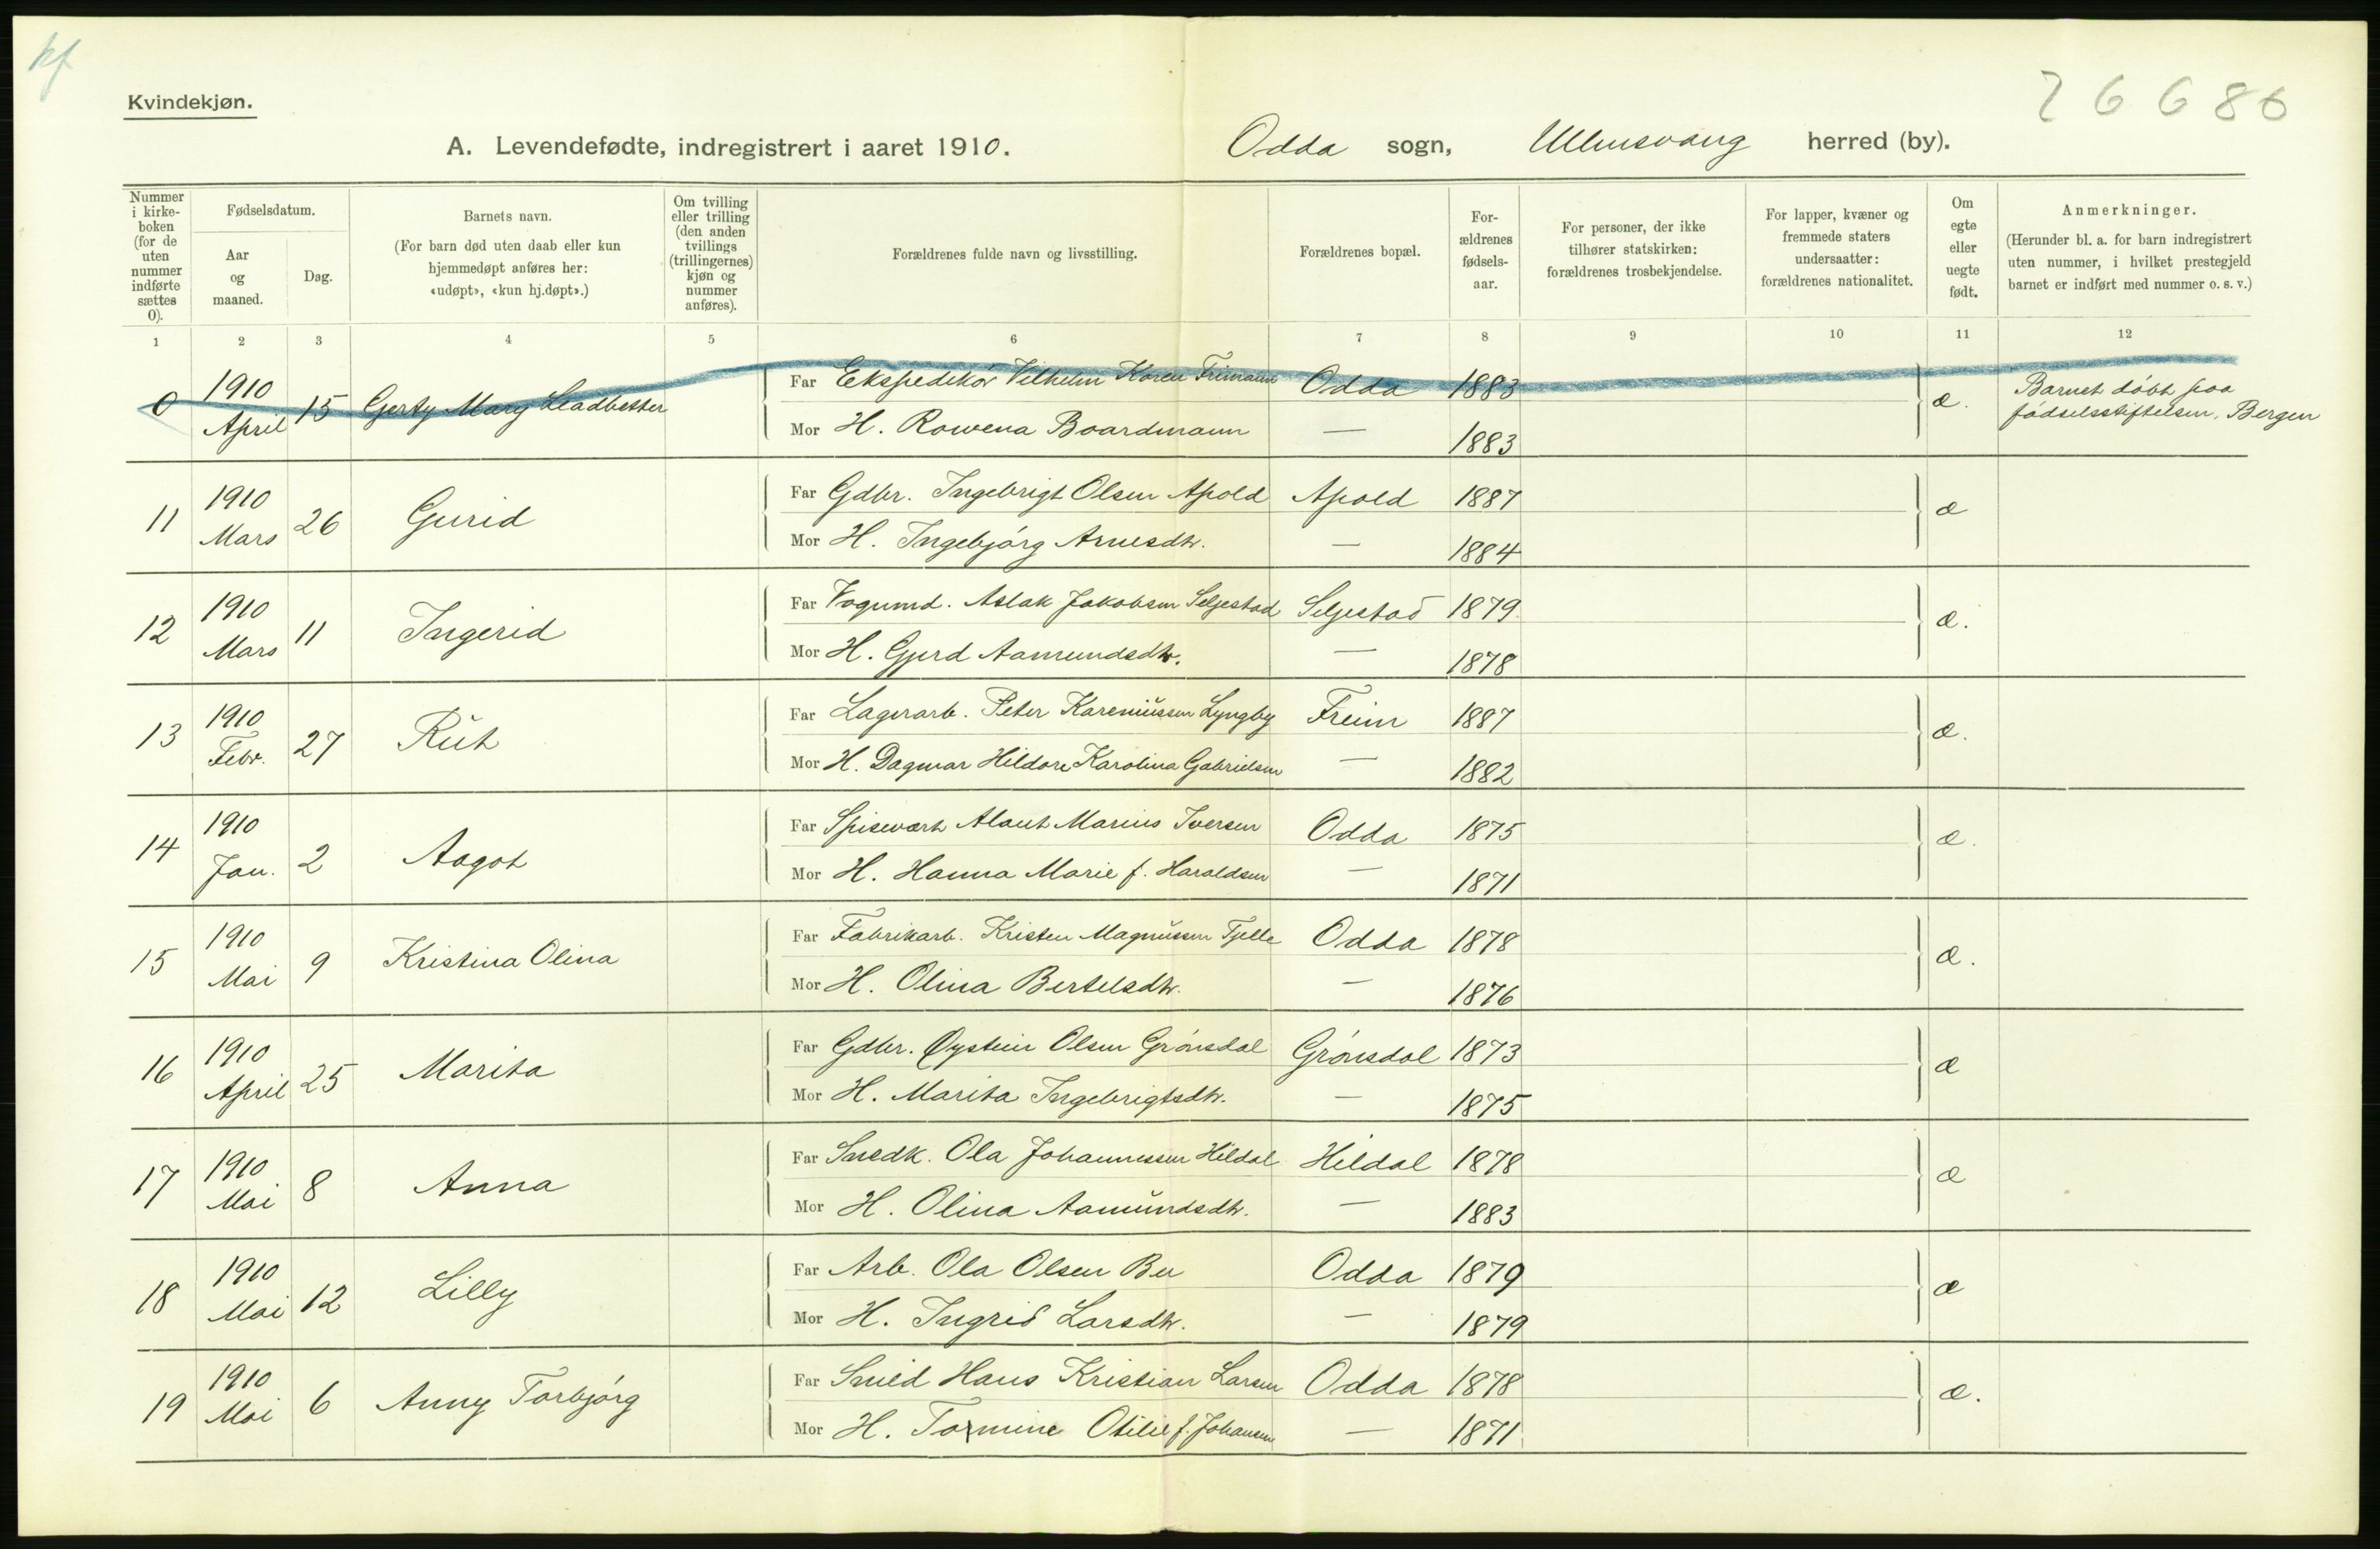 kf
Kvindekjøn.
26686
A. Levendefødte, indregistrert i aaret 1910. Odda sogn, Ullensvang herred (by).
Nummer i kirke-boken (for de uten nummer indførte sættes 0).
Fødselsdatum.
Aar og maaned.
Dag.
Barnets navn.
(For barn død uten daab eller kun hjemmedøpt anføres her: «udøpt», «kun hj.døpt».)
Om tvilling eller trilling (den anden tvillings (trillingernes) kjøn og nummer anføres).
Forældrenes fulde navn og livsstilling.
Forældrenes bopæl.
For-ældrenes fødsels-aar.
For personer, der ikke tilhører statskirken: forældrenes trosbekjendelse.
For lapper, kvæner og fremmede staters undersaatter: forældrenes nationalitet.
Om egte eller uegte født.
Anmerkninger.
(Herunder bl. a. for barn indregistrert uten nummer, i hvilket prestegjeld barnet er indført med nummer o. s. v.)
1 2 3 4 5 6 7 8 9 10 11 12
0 1910 April 15 Gerty Mary Leadbetter
Far Ekspeditør Vilhelm Koren Frimann Odda 1883
Mor H. Rowena Boardmann — 1883
æ.
Barnet døbt paa
fødselsstiftelsen, Bergen
11 1910 Mars 26 Gurid
Far Gdbr. Ingebrigt Olsen Apold Apold 1887
Mor H. Ingebjørg Arnesdtr. — 1884
æ
12 1910 Mars 11 Ingerid
Far Vognmd. Aslak Jakobsen Seljestad Seljestad 1879
Mor H. Gjerd Aamundsdtr. — 1878
æ.
13 1910 Febr. 27 Rut
Far Lagerarb. Peter Kareniussen Lyngby Freim 1887
Mor H. Dagmar Hildore Karolina Gabrielsen — 1882
æ.
14 1910 Jan. 2 Aagot
Far Spisevært Alaut Marius Iversen Odda 1875
Mor H. Hanna Marie f. Haraldsen — 1871
æ.
15 1910 Mai 9 Kristina Olina
Far Fabrikarb. Kristen Magnussen Tjelle Odda 1878
Mor H. Olina Bertelsdtr. — 1876
æ.
16 1910 April 25 Marita
Far Gdbr. Øystein Olsen Grønsdal Grønsdal 1873
Mor H. Marita Ingebrigtsdtr. — 1875
æ
17 1910 Mai 8 Anna
Far Snedk. Ola Johannessen Hildal Hildal 1878
Mor H. Olina Aamundsdtr. — 1883
æ
18 1910 Mai 12 Lilly
Far Arb. Ola Olsen Bu Odda 1879
Mor H. Ingrid Larsdtr. — 1879
æ
19 1910 Mai 6 Anny Torbjørg
Far Smed Hans Kristian Larsen Odda 1878
Mor H. Tormine Otilie f. Johansen — 1871
æ.